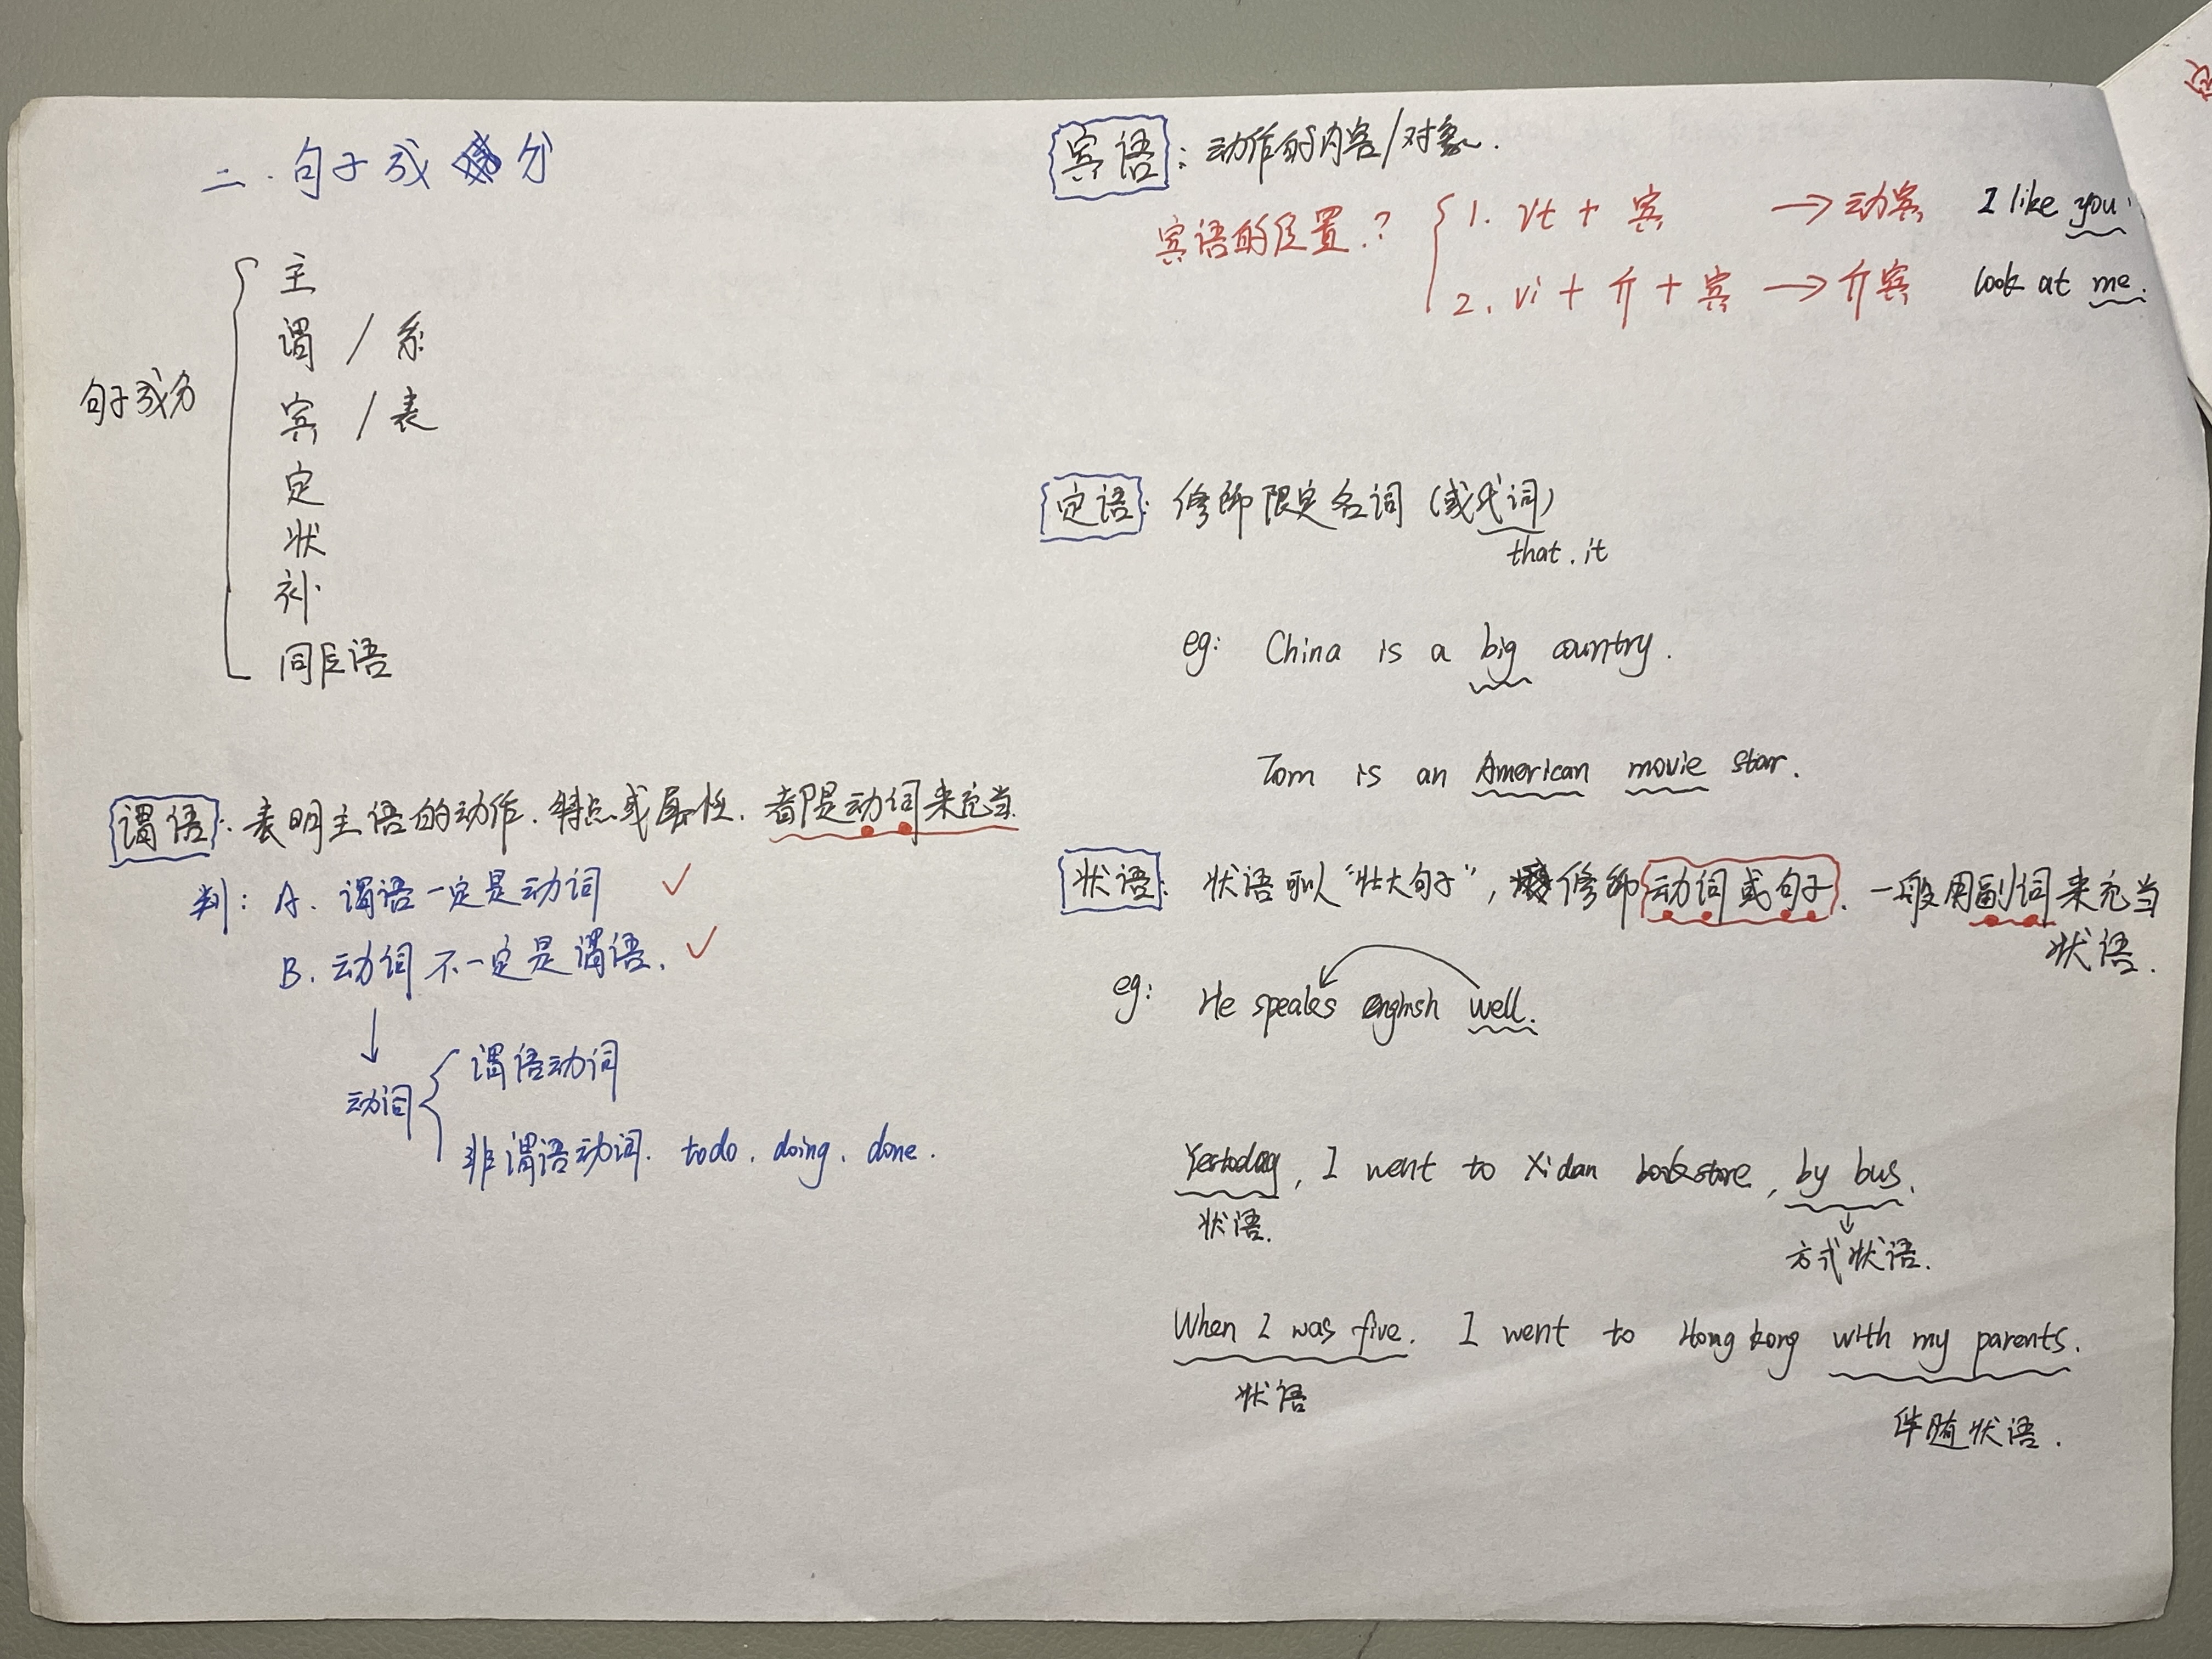 二.句子成分
句子成分
主
谓 / 系
宾 / 表
定
状
补
同位语
谓语: 表明主语的动作.特点或属性. 都是动词来充当.
判: A. 谓语一定是动词 ✓
B. 动词不一定是谓语. ✓
↓
动词
谓语动词
非谓语动词. todo. doing. done.
宾语: 动作的内容/对象.
宾语的位置.?
1. vt + 宾 → 动宾 I like you.
2. vi + 介 + 宾 → 介宾 look at me.
定语: 修饰限定名词 (或代词)
that. it
eg: China is a big country.
Tom is an American movie star.
状语: 状语可以“壮大句子”, 修饰动词或句子. 一般用副词来充当
状语.
eg: He speaks english well.
Yestoday, I went to Xidan bookstore, by bus.
状语. 方式状语.
When I was five. I went to Hong kong with my parents.
状语
伴随状语.